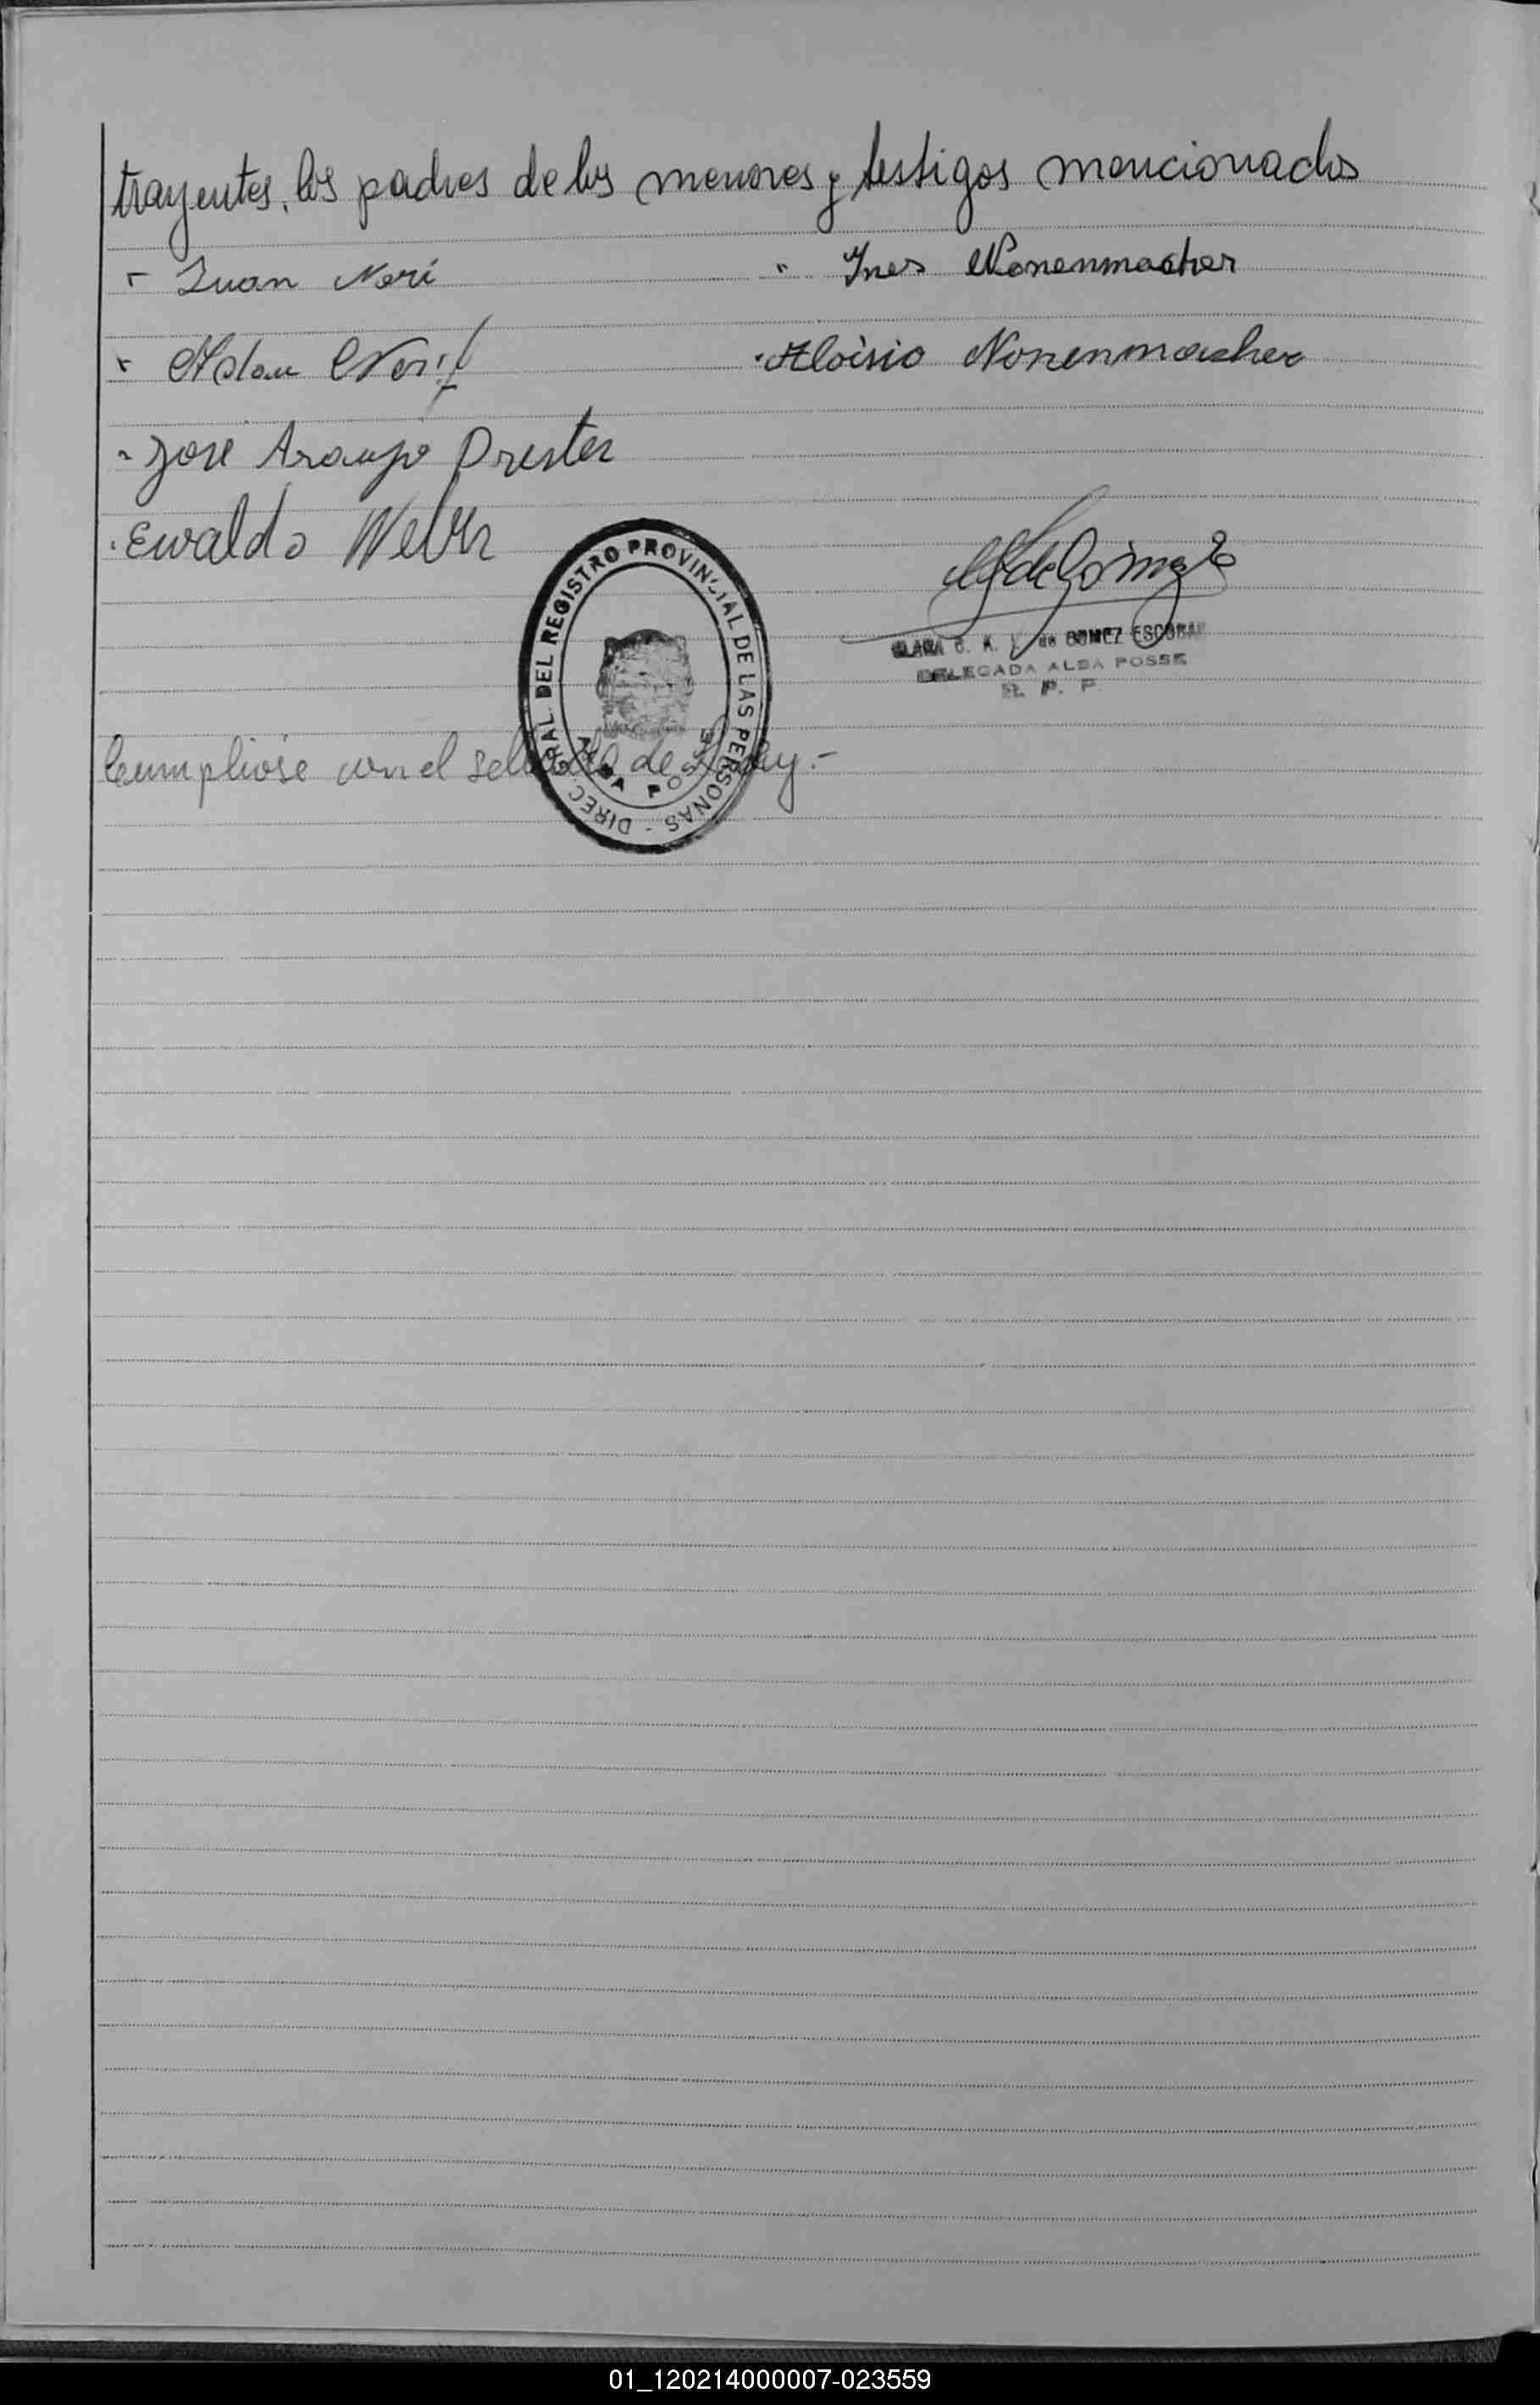 trayentes, los padres de los menores y testigos mencionados
Juan Neri
Ines Nonenmacher
Adan Neri
Aloisio Nonenmacher
José Araujo Prestes
Ewaldo Weber
DIREC. GRAL. DEL REGISTRO PROVINCIAL DE LAS PERSONAS -
ALBA POSSE
de GOMEZ ESCOBAR
DELEGADA ALBA POSSE
R. P. P.
Cumpliose con el sellado de Ley.-
01_120214000007-023559